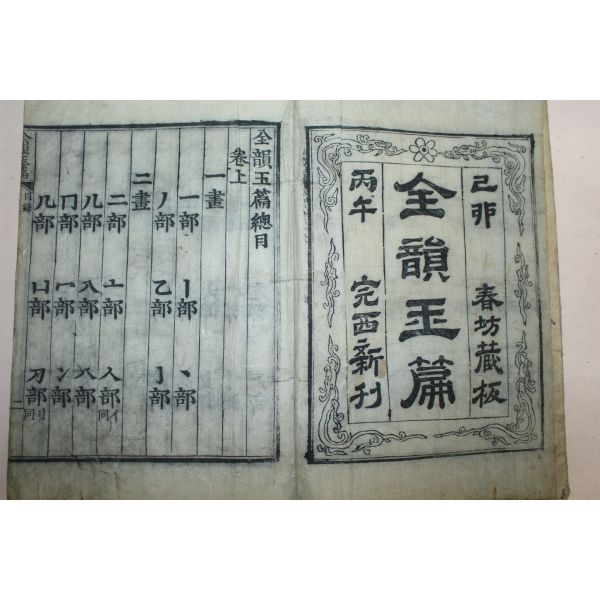 己卯 春坊藏板
全韻玉篇
丙午 完西新刊
全韻玉篇總目
卷上
一畫
一部 丨部 丶部
丿部 乙部 亅部
二畫
二部 亠部 人部 亻同
儿部 入部 八部
冂部 冖部 冫部
几部 凵部 刀部 刂同